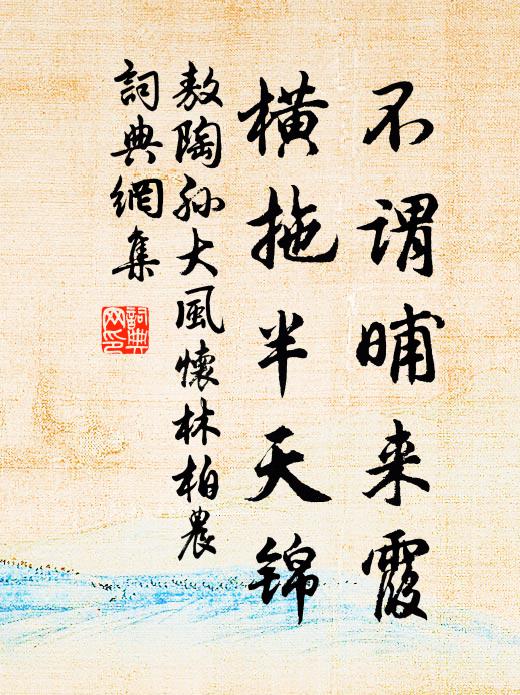 不谓晡来霞
横拖半天锦
敖陶孙大風懷林柏農
詞典網集
詞典
网印